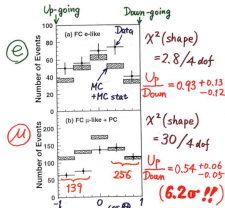 Up-going
Down-going
e
(a) FC e-like
Data
MC
+MC stat
Number of Events
60
40
20
0
χ² (shape)
= 2.8/4 dof
Up/Down = 0.93 +0.13 -0.12
μ
(b) FC μ-like + PC
Number of Events
200
150
100
50
0
139
256
-1
0
cosΘ
1
χ² (shape)
= 30/4 dof
Up/Down = 0.54 +0.06 -0.05
(6.2σ !!)